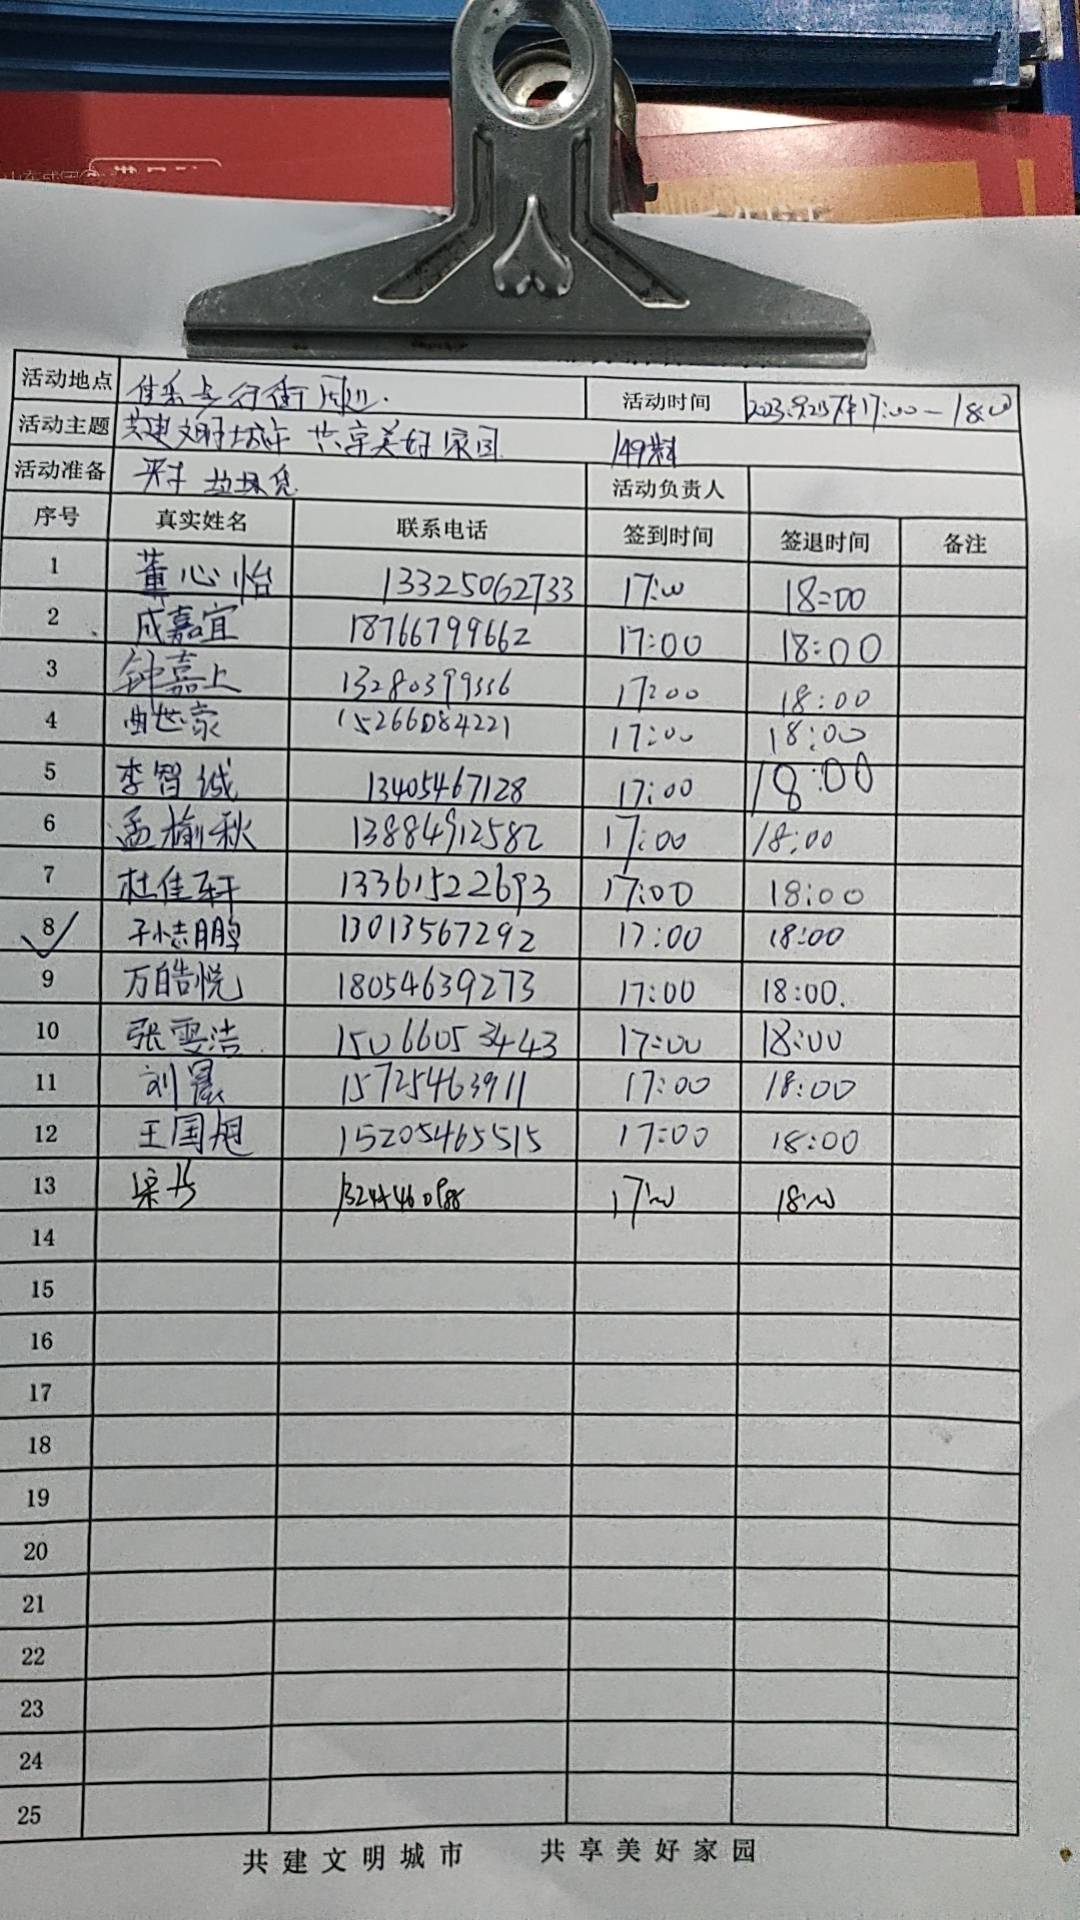 活动地点 佳乐步行街周边. 活动时间 2023.9.20下午17:00-18:00
活动主题 共建文明城市 共享美好家园
活动准备 夹子 垃圾袋 活动负责人
序号 真实姓名 联系电话 签到时间 签退时间 备注
1 董心怡 13325062733 17:00 18:00
2 成嘉宜 18766799662 17:00 18:00
3 钟嘉上 17:00 18:00
4 曲世家 15266084221 17:00 18:00
5 李智诚 13405467128 17:00 18:00
6 孟榆秋 13884912582 17:00 18:00
7 杜佳轩 13361522693 17:00 18:00
8 13013567292 17:00 18:00
9 万皓悦 18054639273 17:00 18:00.
10 张雯浩 15066053443 17:00 18:00
11 刘晨 15725463911 17:00 18:00
12 王国旭 15205465515 17:00 18:00
13 17:00 18:00
14
15
16
17
18
19
20
21
22
23
24
25
共建文明城市 共享美好家园